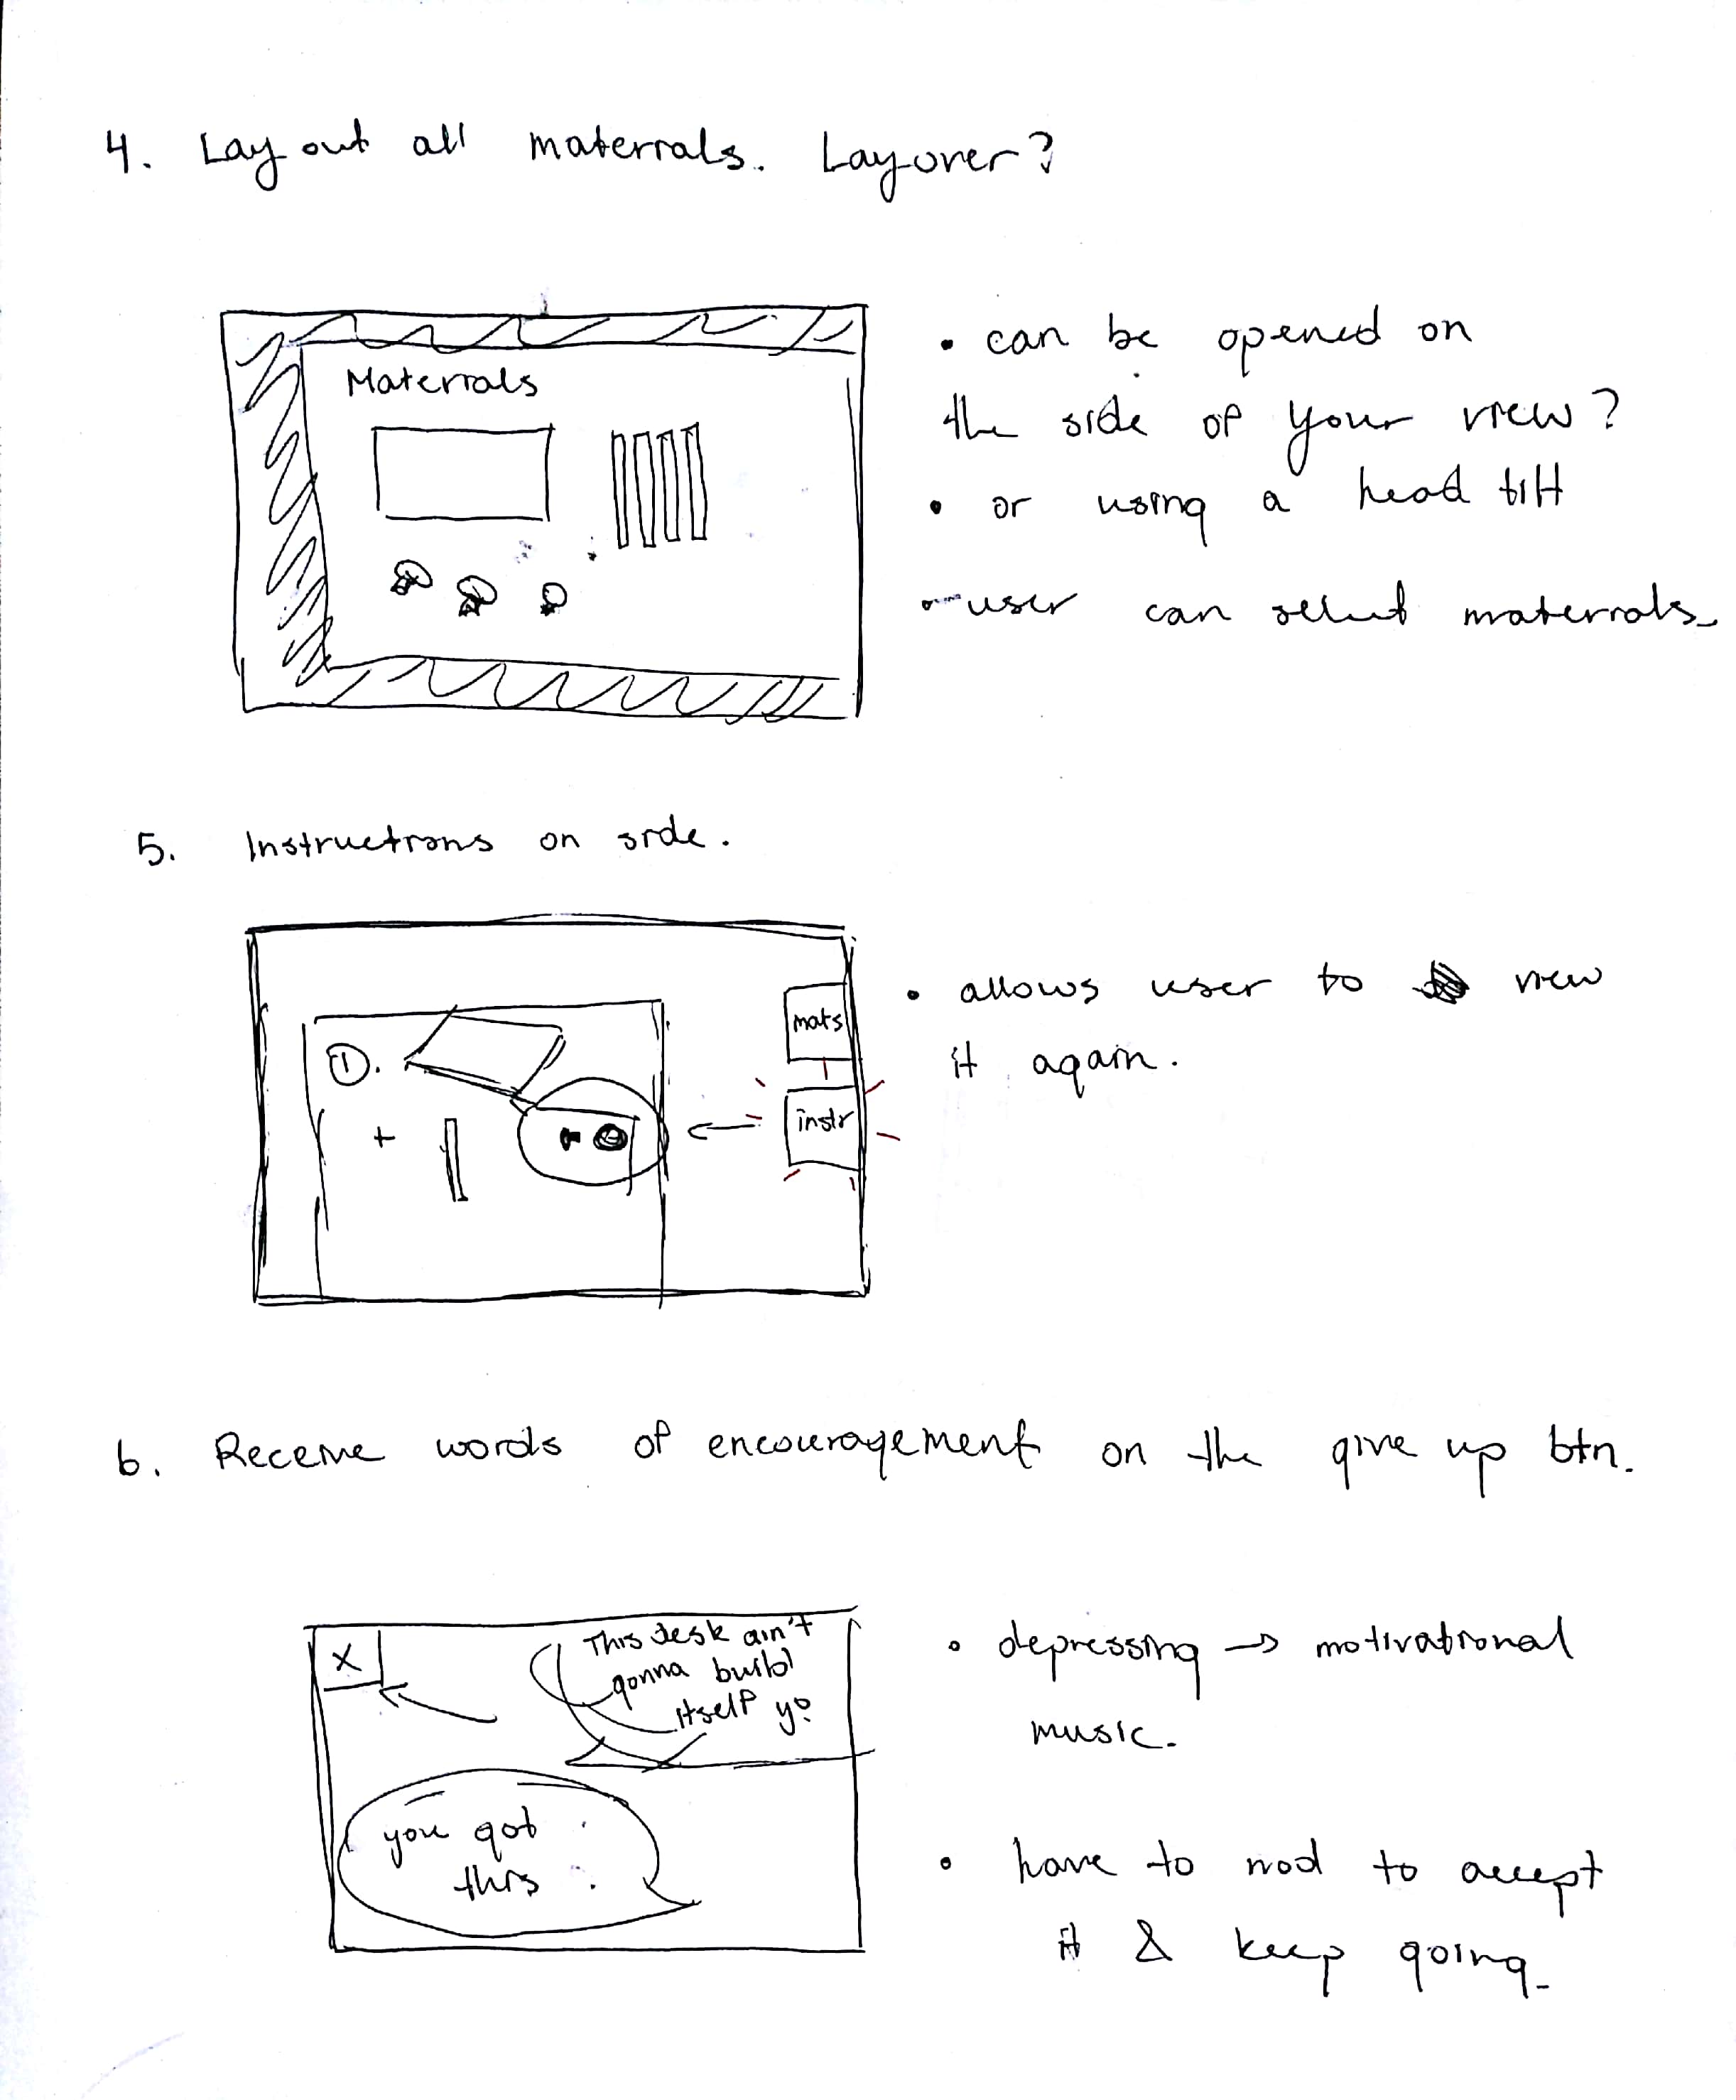 4. Lay out all materials. Layover?
Materials
• can be opened on
the side of your view?
• or using a head tilt
• user can select materials.
5. Instructions on side.
mats
①.
+
instr
• allows user to view
it again.
6. Receive words of encouragement on the give up btn.
X
This desk ain't
gonna build
itself yo
you got
this
• depressing → motivational
music.
• have to nod to accept
it & keep going.